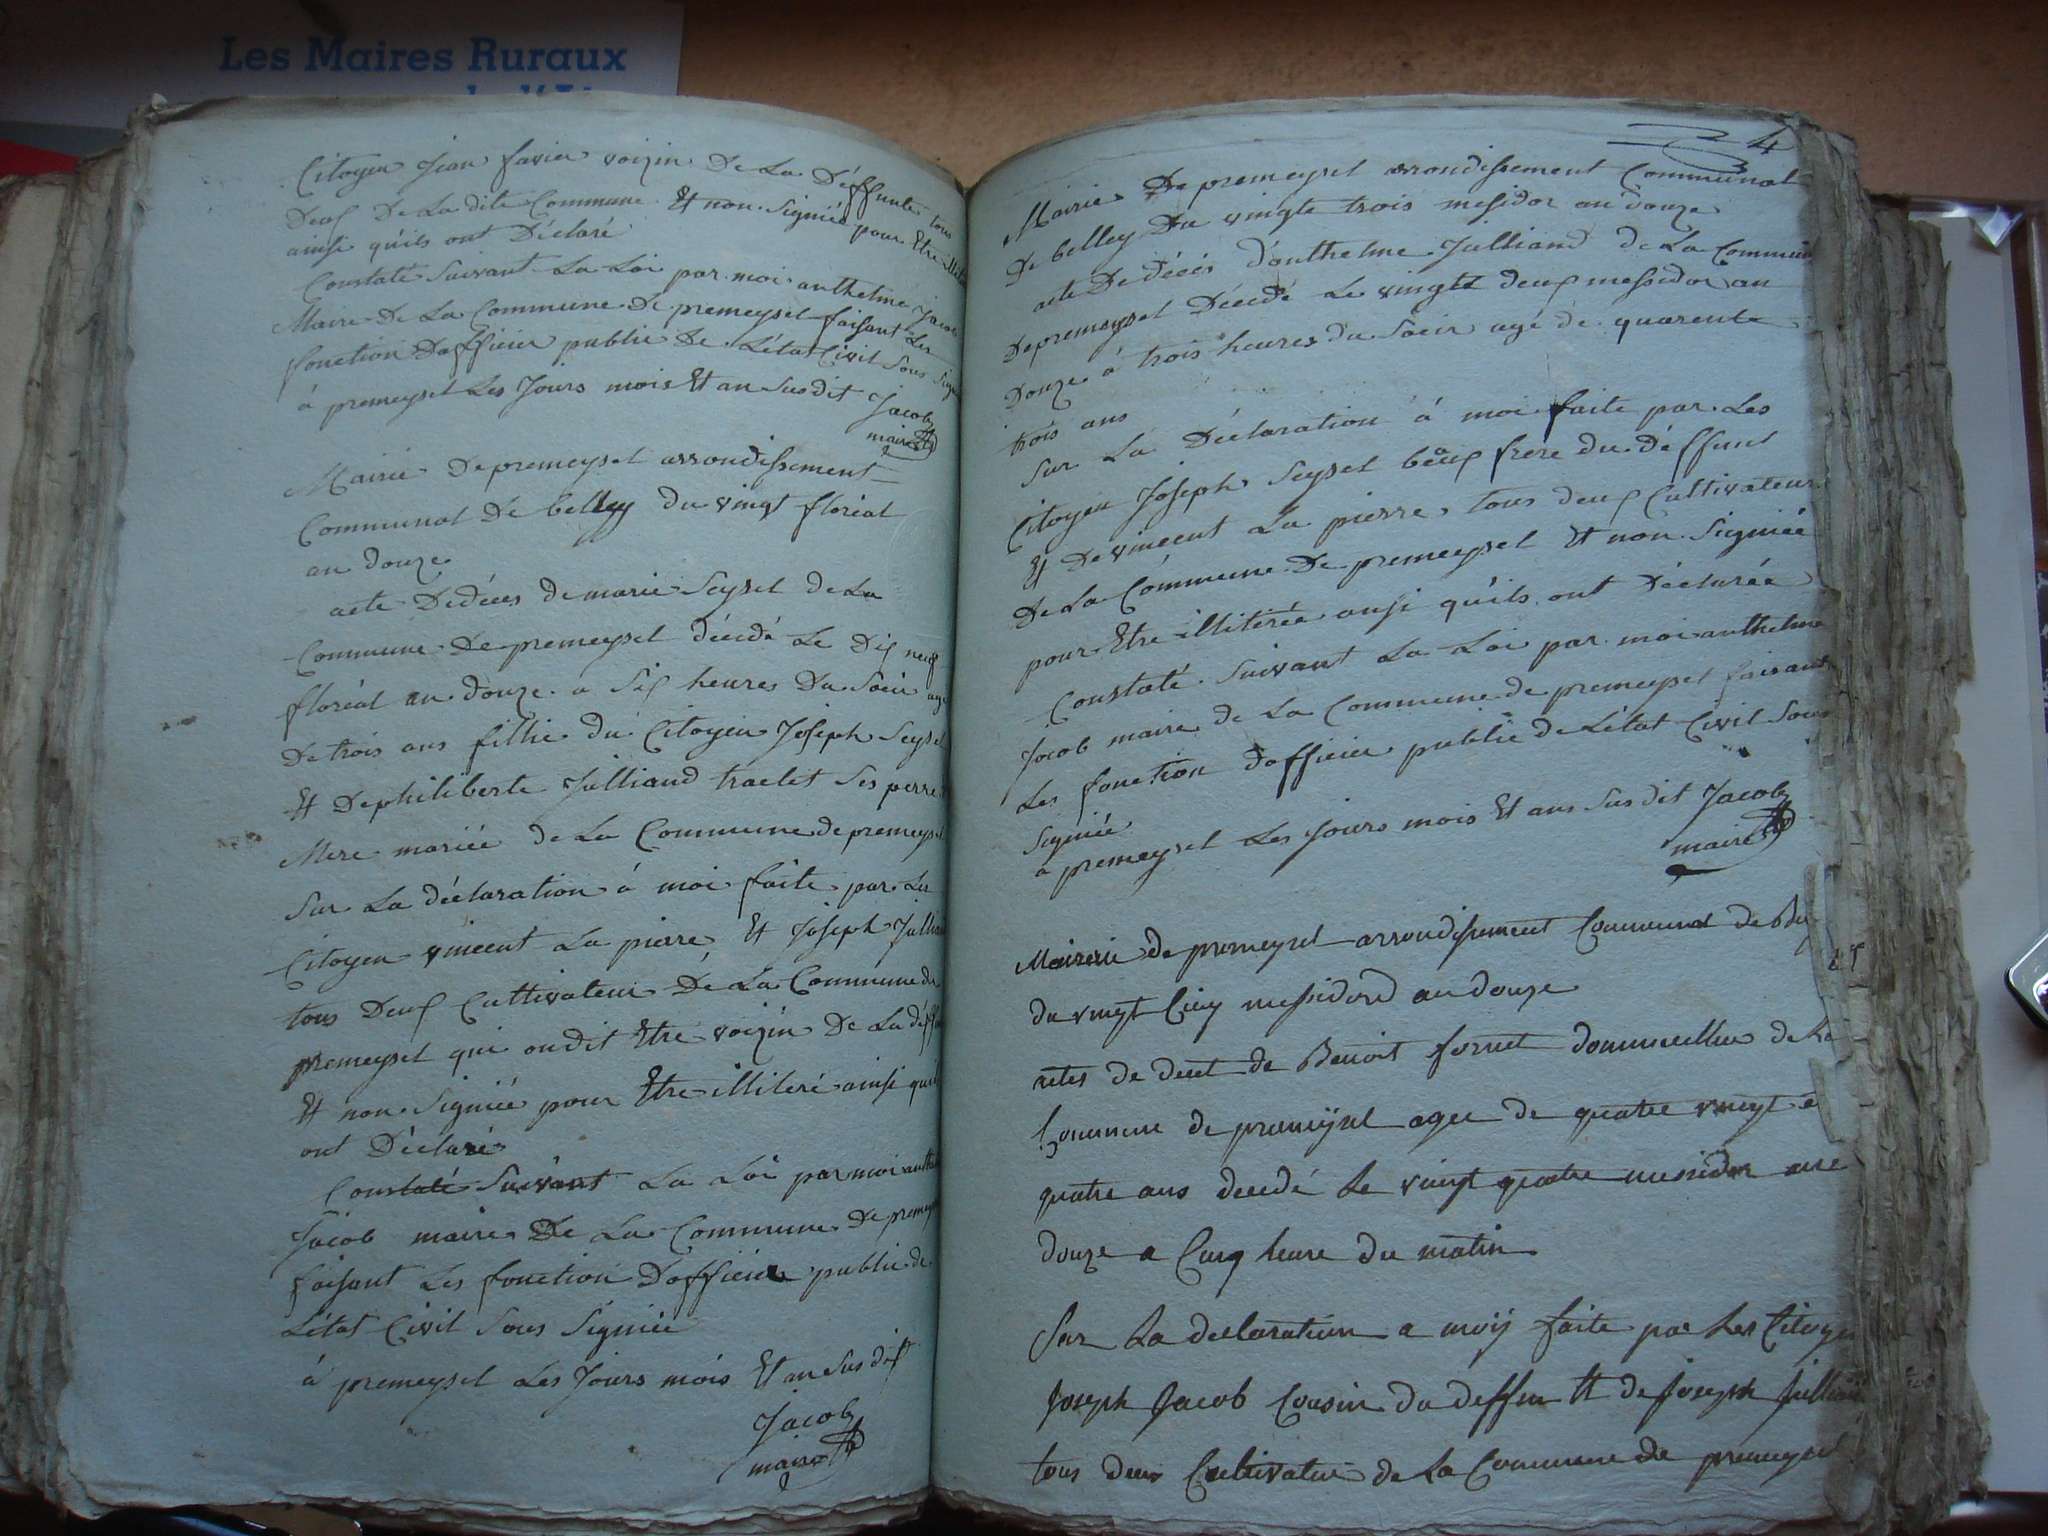 Les Maires Ruraux
Citoyen Jean favier voizin De La Déffunte tous
Deux De La dite Commune Et non Signiéé pour Etre
ainsi qu'ils ont Déclaré
Constaté Suivant La Loi par moi anthelme Jacob
Maire De La Commune De premeysel faisant Les
fonction D'officier public De L'état Civil Sous
à premeysel Les Jours mois Et an Susdit Jacob
maire
Mairie De premeysel arrondissement
Communal De belley du vingt floréal
an douze
acte De déces de marie Seysel de La
Commune De premeysel décédé Le Dix neuf
floréal an douze a Six heures Du Soéir agé
De trois ans fillie du Citoyen Joseph Seysel
Et De philiberte Julliand traclet Ses perre
Mere mariée de La Commune de premeysel
Sur La déclaration à moi faite par Les
Citoyen vincent La pierre Et Joseph
tous Deux Cultivateur De La Commune de
premeysel qui ondit Etre voizin De La
Et non Signiéé pour Etre illiteré ainsi
ont Déclaré
Constaté Suivant La Loi par moi
Jacob maire De La Commune De
faisant Les fonction D'officier public de
L'état Civil Sous Signiéé
à premeysel Les Jours mois Et an Sus dit
Jacob
maire
4
Mairie De premeysel arrondissement Communal
De belley Du vingte trois mesidor an douze
acte De décés d'anthelme Julliand de La Commune
De premeysel Décédé Le vingte deux messidor an
Douze à trois heures du Soéir agé de quarente
trois ans
Sur La Déclaration à moi faite par Les
Citoyen Joseph Seysel béux frere du déffunt
Et De vincent La pierre tous deux Cultivateur
De La Commune De premeysel Et non Signiéé
pour Etre illiterée ansi qu'ils ont Déclarée
Constaté Suivant La Loi par moi anthelme
Jacob maire de La Commune de premeysel faisant
Les fonction d'officier public de L'état Civil Sous
Signiéé
à premeysel Les Jours mois Et ans Sus dit Jacob
maire
Mairerie de premeysel arrondisement Communal de
du vingt Cinq messidord an douze
actes de decet de Benoit fornet de La
Commune de premeÿsel agee de quatre vingt
quatre ans decedé Le vingt quatre messidor
douze a Cinq heure du matin
Sur La declaration a moÿ faite par Les
Joseph Jacob Cousin du deffun Et de Joseph
tous deux Cultivateur de La Commune de premeysel